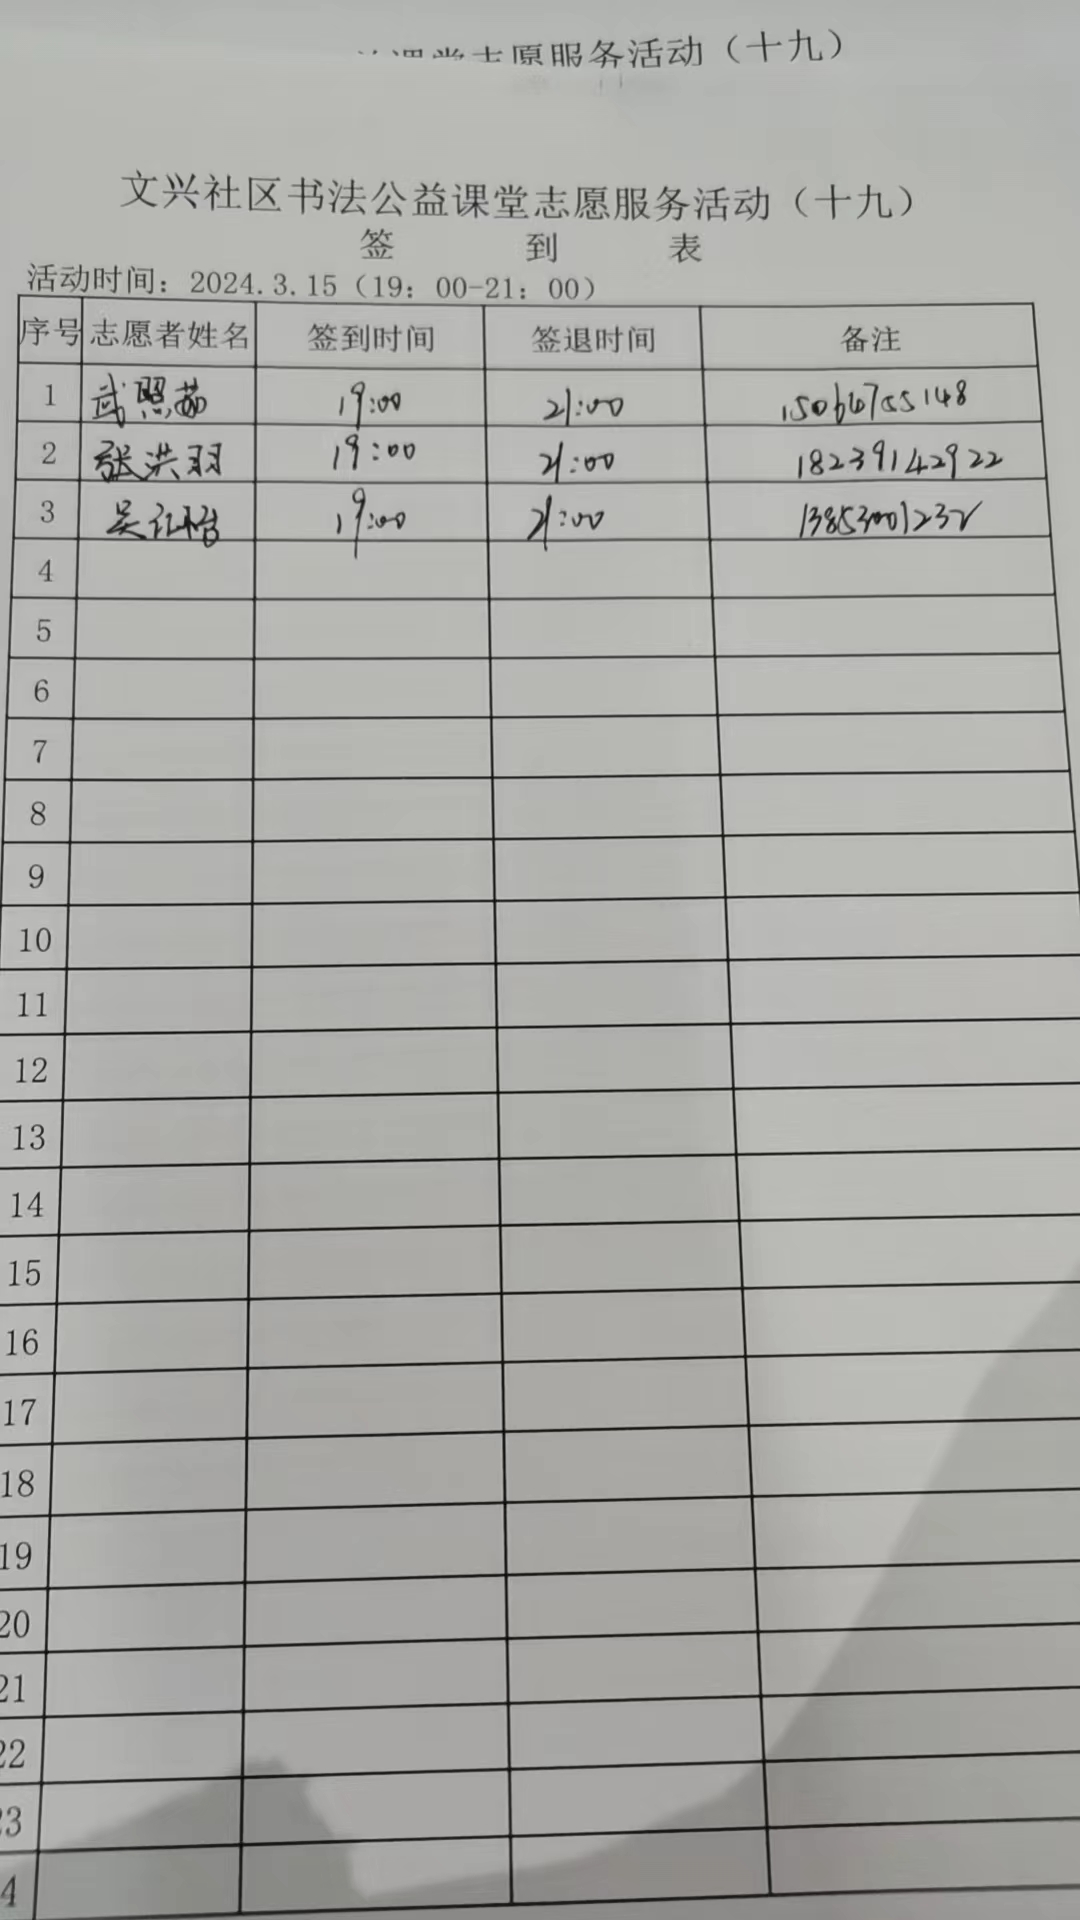 志愿服务活动（十九）
文兴社区书法公益课堂志愿服务活动（十九）
签到表
活动时间：2024.3.15（19：00-21：00）
序号 志愿者姓名 签到时间 签退时间 备注
1 武照茹 19:00 21:00
2 张洪羽 19:00 21:00 18239142922
3 吴 19:00 21:00 13853001232
4
5
6
7
8
9
10
11
12
13
14
15
16
17
18
19
20
21
22
23
4